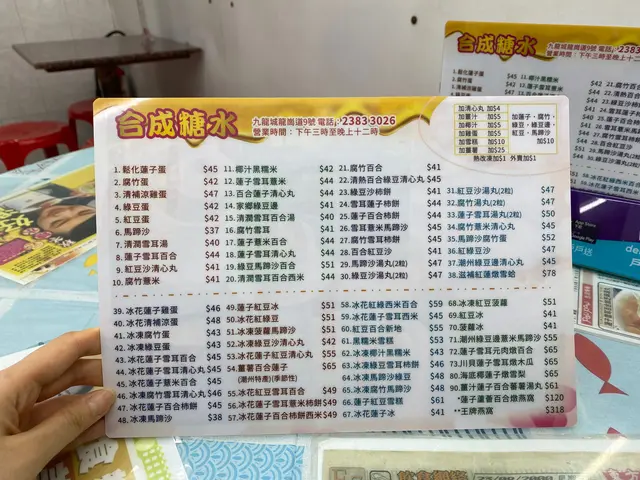 合成糖水
九龍城龍崗道9號 電話: 2383 3026
營業時間：下午三時至晚上十二時
加清心丸 加$4
加薑汁 加$5
加椰汁 加$5
加豆漿 加$5
加雪糕 加$10
加薑薯 加$25
加蓮子、腐竹、
綠豆、綠豆邊、
紅豆、馬蹄沙
加$10
熱改凍加$1 外賣加$1
1. 鬆化蓮子蛋 $45
2. 腐竹蛋 $42
3. 清補涼雞蛋 $47
4. 綠豆蛋 $42
5. 紅豆蛋 $42
6. 馬蹄沙 $37
7. 清潤雪耳湯 $40
8. 蓮子雪耳湯 $44
9. 紅豆沙清心丸 $41
10. 腐竹薏米 $41
11. 椰汁黑糯米 $42
12. 蓮子雪耳薏米 $44
13. 百合蓮子清心丸 $44
14. 家鄉綠豆邊 $41
15. 清潤雪耳百合湯 $40
16. 腐竹雪耳 $41
17. 蓮子薏米百合 $44
18. 蓮子雪耳百合 $44
19. 綠豆馬蹄沙百合 $51
20. 清潤雪耳百合西米 $44
21. 腐竹百合 $41
22. 清熱百合綠豆清心丸 $45
23. 綠豆沙柿餅 $44
24. 雪耳薏米柿餅 $44
25. 蓮子百合柿餅 $44
26. 雪耳薏米清心丸 $44
27. 雪耳百合柿餅 $44
28. 雪耳薏米百合 $44
29. 紅豆沙湯丸(2粒) $47
30. 綠豆沙湯丸(2粒) $47
31. 紅豆沙湯丸(2粒) $47
32. 腐竹湯丸(2粒) $47
33. 蓮子雪耳湯丸(2粒) $50
34. 雪耳薏米湯丸(2粒) $47
35. 馬蹄沙腐竹蛋 $52
36. 腐竹馬蹄沙 $47
37. 潮州綠豆邊清心丸 $51
38. 滋補紅蓮燉雪蛤 $78
39. 冰花蓮子雞蛋 $46
40. 冰花清補涼蛋 $48
41. 冰凍腐竹蛋 $43
42. 冰凍綠豆蛋 $43
43. 冰花蓮子雪耳百合 $45
44. 冰花蓮子雪耳清心丸 $45
45. 冰花蓮子薏米百合 $45
46. 冰花腐竹雪耳清心丸 $45
47. 冰花蓮子百合柿餅 $45
48. 冰凍馬蹄沙 $38
49. 蓮子紅豆冰 $51
50. 冰花紅綠豆 $51
51. 冰凍菠蘿馬蹄沙 $51
52. 冰凍綠豆沙清心丸 $42
53. 冰花蓮子紅豆清心丸 $55
54. 薑薯百合蓮子 $65
(潮州特產)(季節性)
55. 冰花紅豆雪耳百合 $49
56. 冰花蓮子雪耳薏米柿餅 $49
57. 冰花蓮子百合柿餅西米 $49
58. 冰花紅綠西米百合 $59
59. 冰花綠豆雪耳柿餅 $55
60. 紅豆百合新地 $55
61. 黑糯米雪糕 $53
62. 冰凍椰汁黑糯米 $43
63. 冰花綠豆雪耳百合 $49
64. 冰凍馬蹄沙綠豆 $48
65. 冰凍腐竹馬蹄沙 $48
66. 蓮子紅豆雪糕 $61
67. 冰花蓮子冰 $41
68. 冰凍紅豆菠蘿 $51
69. 紅豆冰 $41
70. 菠蘿冰 $41
71. 潮州綠豆邊馬蹄沙 $51
72. 蓮子雪耳元肉燉百合 $65
73. 川貝蓮子雪耳燉木瓜 $65
75. 海底椰蓮子燉雪梨 $65
90. 薑汁蓮子百合薯薯湯丸 $61
*蓮子蘆薈百合燉燕窩 $120
**王牌燕窩 $318
合成糖水
九龍城龍崗道9號 電話: 2383
營業時間：下午三時至晚上十二